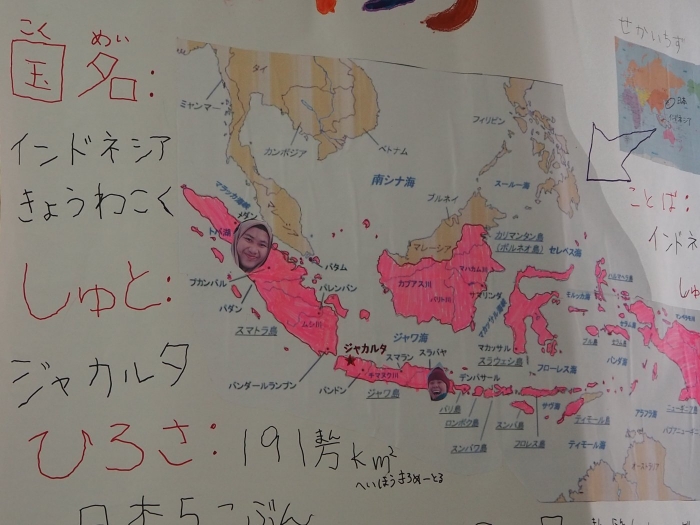 こく めい
国名:
インドネシア
きょうわこく
しゅと:
ジャカルタ
ひろさ: 191万km²
まん
へいほうきろめーとる
日本5こぶん
せかいちず
日本
インドネシア
ことば:
インドネ
しゅ
タイ
ミャンマー
カンボジア
ベトナム
フィリピン
南シナ海
スールー海
ブルネイ
マラッカ海峡
メダン
トバ湖
マレーシア
マレーシア
カリマンタン島
(ボルネオ島)
セレベス海
バタム
プカンバル
パダン
パレンバン
ムシ川
カプアス川
マハカム川
バリト川
サマリンダ
マカッサル海峡
モルッカ海
ハルマヘラ島
スマトラ島
ジャワ海
ジャカルタ
スマラン
スラバヤ
マカッサル
スラウェシ島
ブル島
セラム島
セラム海
バンダ海
バンダールランプン
バンドン
チマヌク川
ジャワ島
デンパサール
フローレス海
バリ島
ロンボク島
スンバワ島
スンバ島
フロレス島
サヴ海
ティモール島
ティモール海
アラフラ海
ニューギニア島
パプアニューギニ
オーストラリア